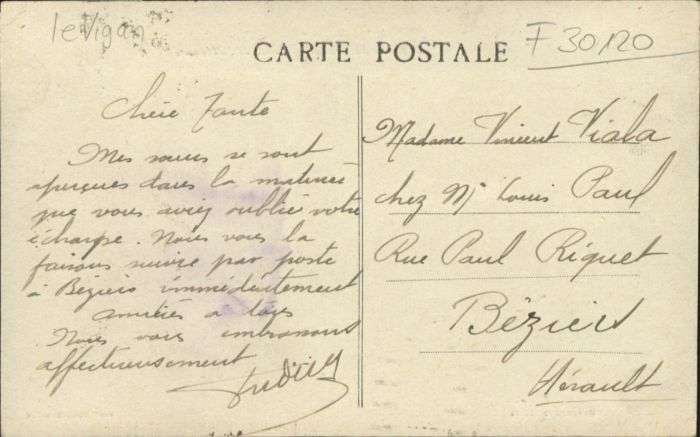 le Vigan
F 30120
CARTE POSTALE
Chère Tante
Mes sœurs se sont
aperçues dans la matinée
que vous aviez oublié votre
écharpe. Nous vous la
faisons suivre par poste
à Béziers immédiatement
amitiés a tous
Nous vous embrassons
affectueusement
Madame Vincent Viala
chez Mr Louis Paul
Rue Paul Riquet
Béziers
Hérault